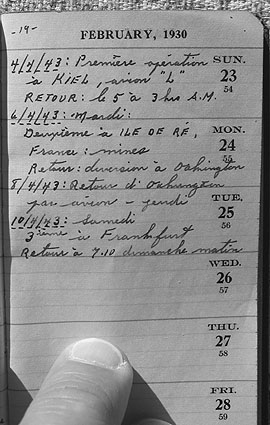 -19-
FEBRUARY, 1930
4/4/43: Première opération
à KIEL, avion "L"
RETOUR: le 5 à 3 hrs A.M.
6/4/43: Mardi:
Deuxième à ILE DE RÉ,
France: mines
Retour: diversion à Oakington
8/4/43: Retour d'Oakington
par avion - jeudi
10/4/43: Samedi
3ième à Frankfurt
Retour à 7.10 dimanche matin
SUN.
23
54
MON.
24
55
TUE.
25
56
WED.
26
57
THU.
27
58
FRI.
28
59